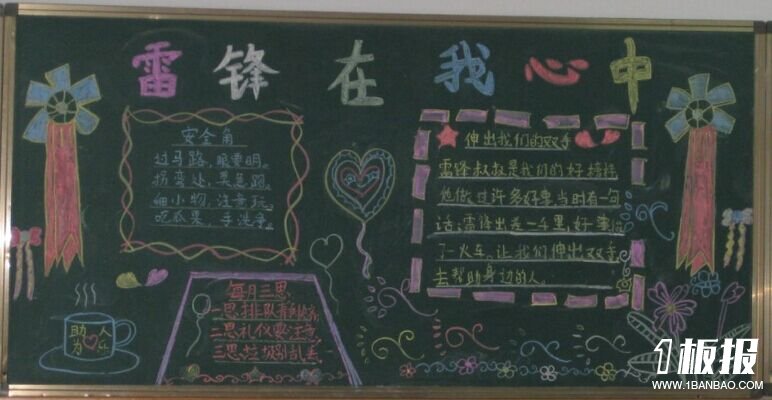 雷锋在我心中
安全角
过马路，眼要明。
拐弯处，莫急跑，
细小物，注意玩。
吃瓜果，手洗净。
伸出我们的双手
雷锋叔叔是我们的好榜样
他做过许多好事，当时有一句
话：雷锋出差一千里，好事做
了一火车。让我们伸出双手
去帮助身边的人。
每月三思
一思排队
二思礼仪要注意
三思垃圾别乱丢
助人
为乐
1板报
WWW.1BANBAO.COM